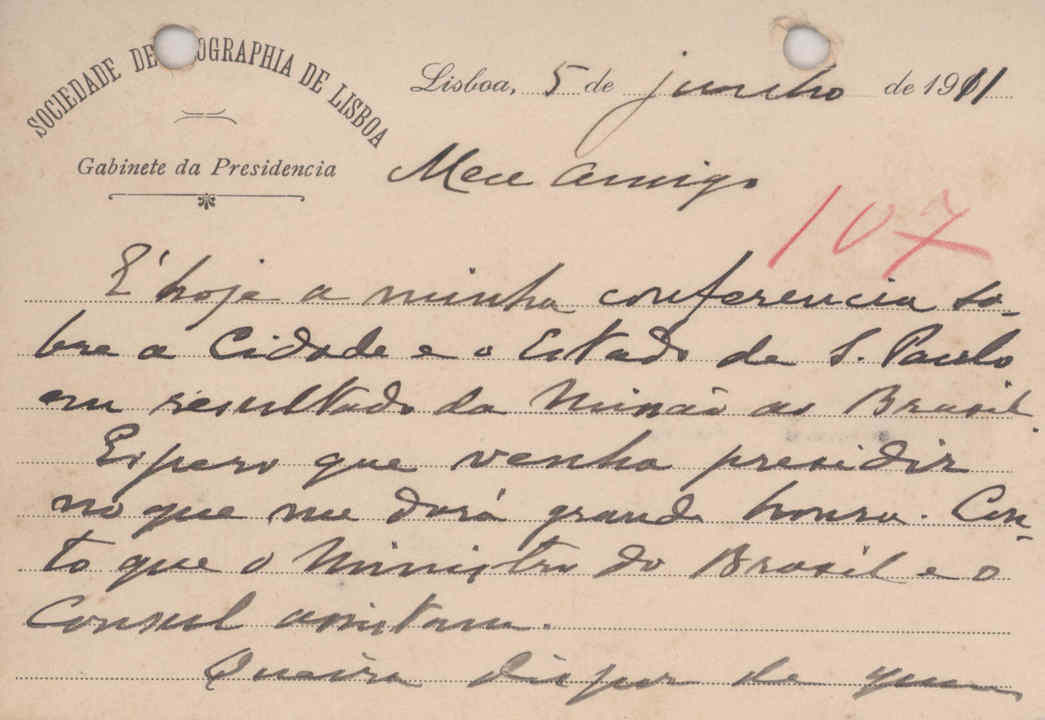 SOCIEDADE DE GEOGRAPHIA DE LISBOA
Gabinete da Presidencia
Lisboa, 5 de junho de 1911
Meu amigo
107
É hoje a minha conferencia so-
bre a Cidade e o Estado de S. Paulo
em resultado da Missão ao Brasil.
Espero que venha presidir
no que me dará grande honra. Con-
to que o Ministro do Brasil e o
Consul assistam.
Queira dispor de quem